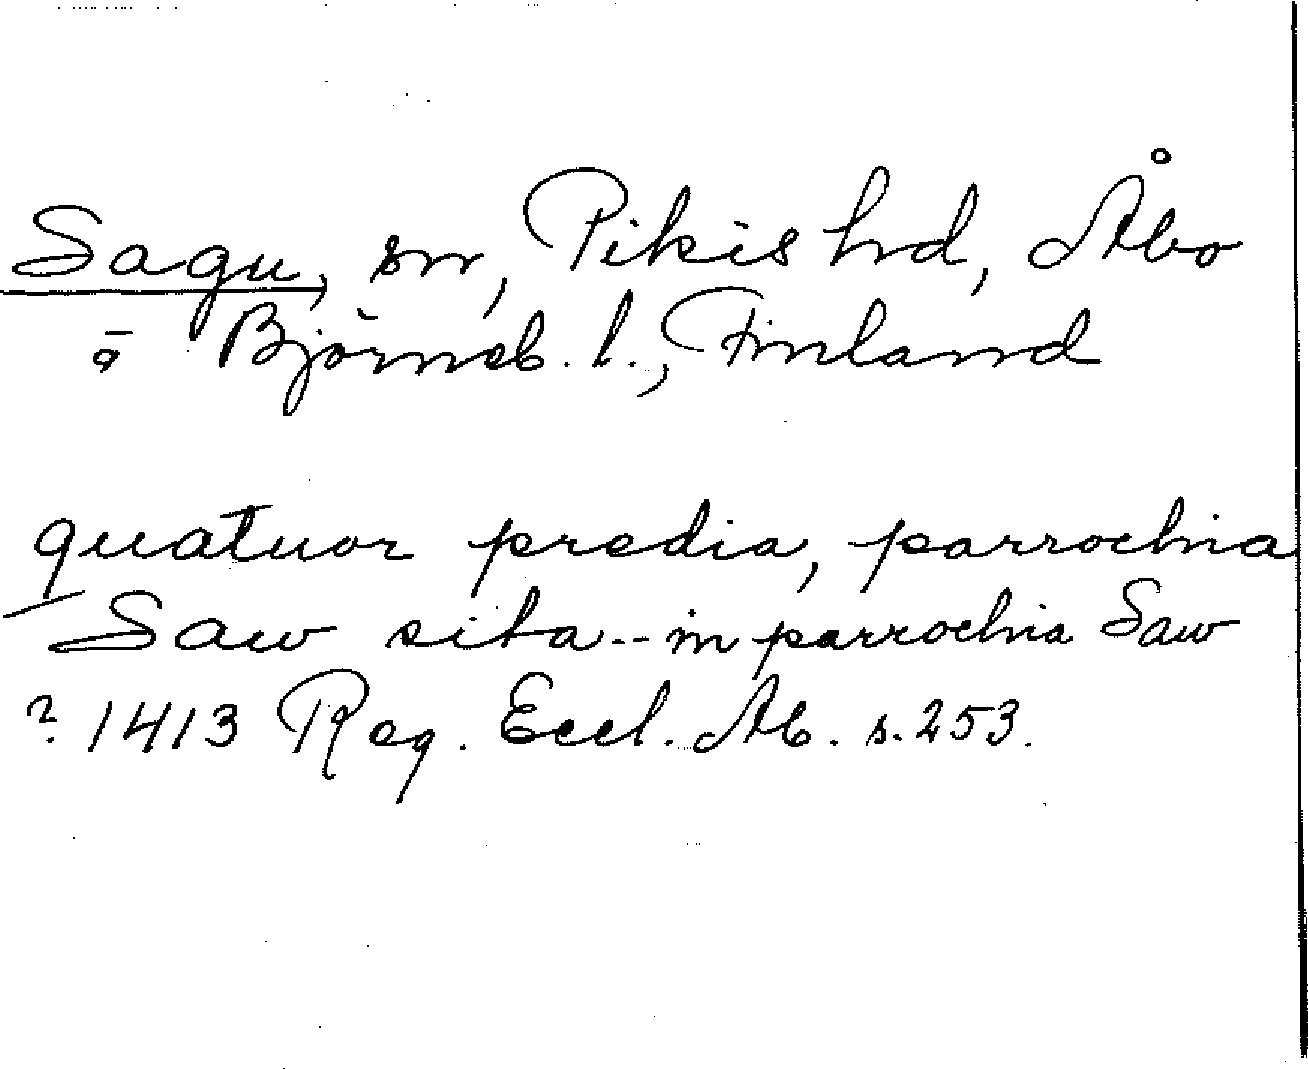 Sagu, sn, Pikis hd, Åbo
o Björneb. l., Finland
quatuor predia, parrochia
Saw sita -- in parrochia Saw
? 1413 Reg. Eccl. Ab. s. 253.